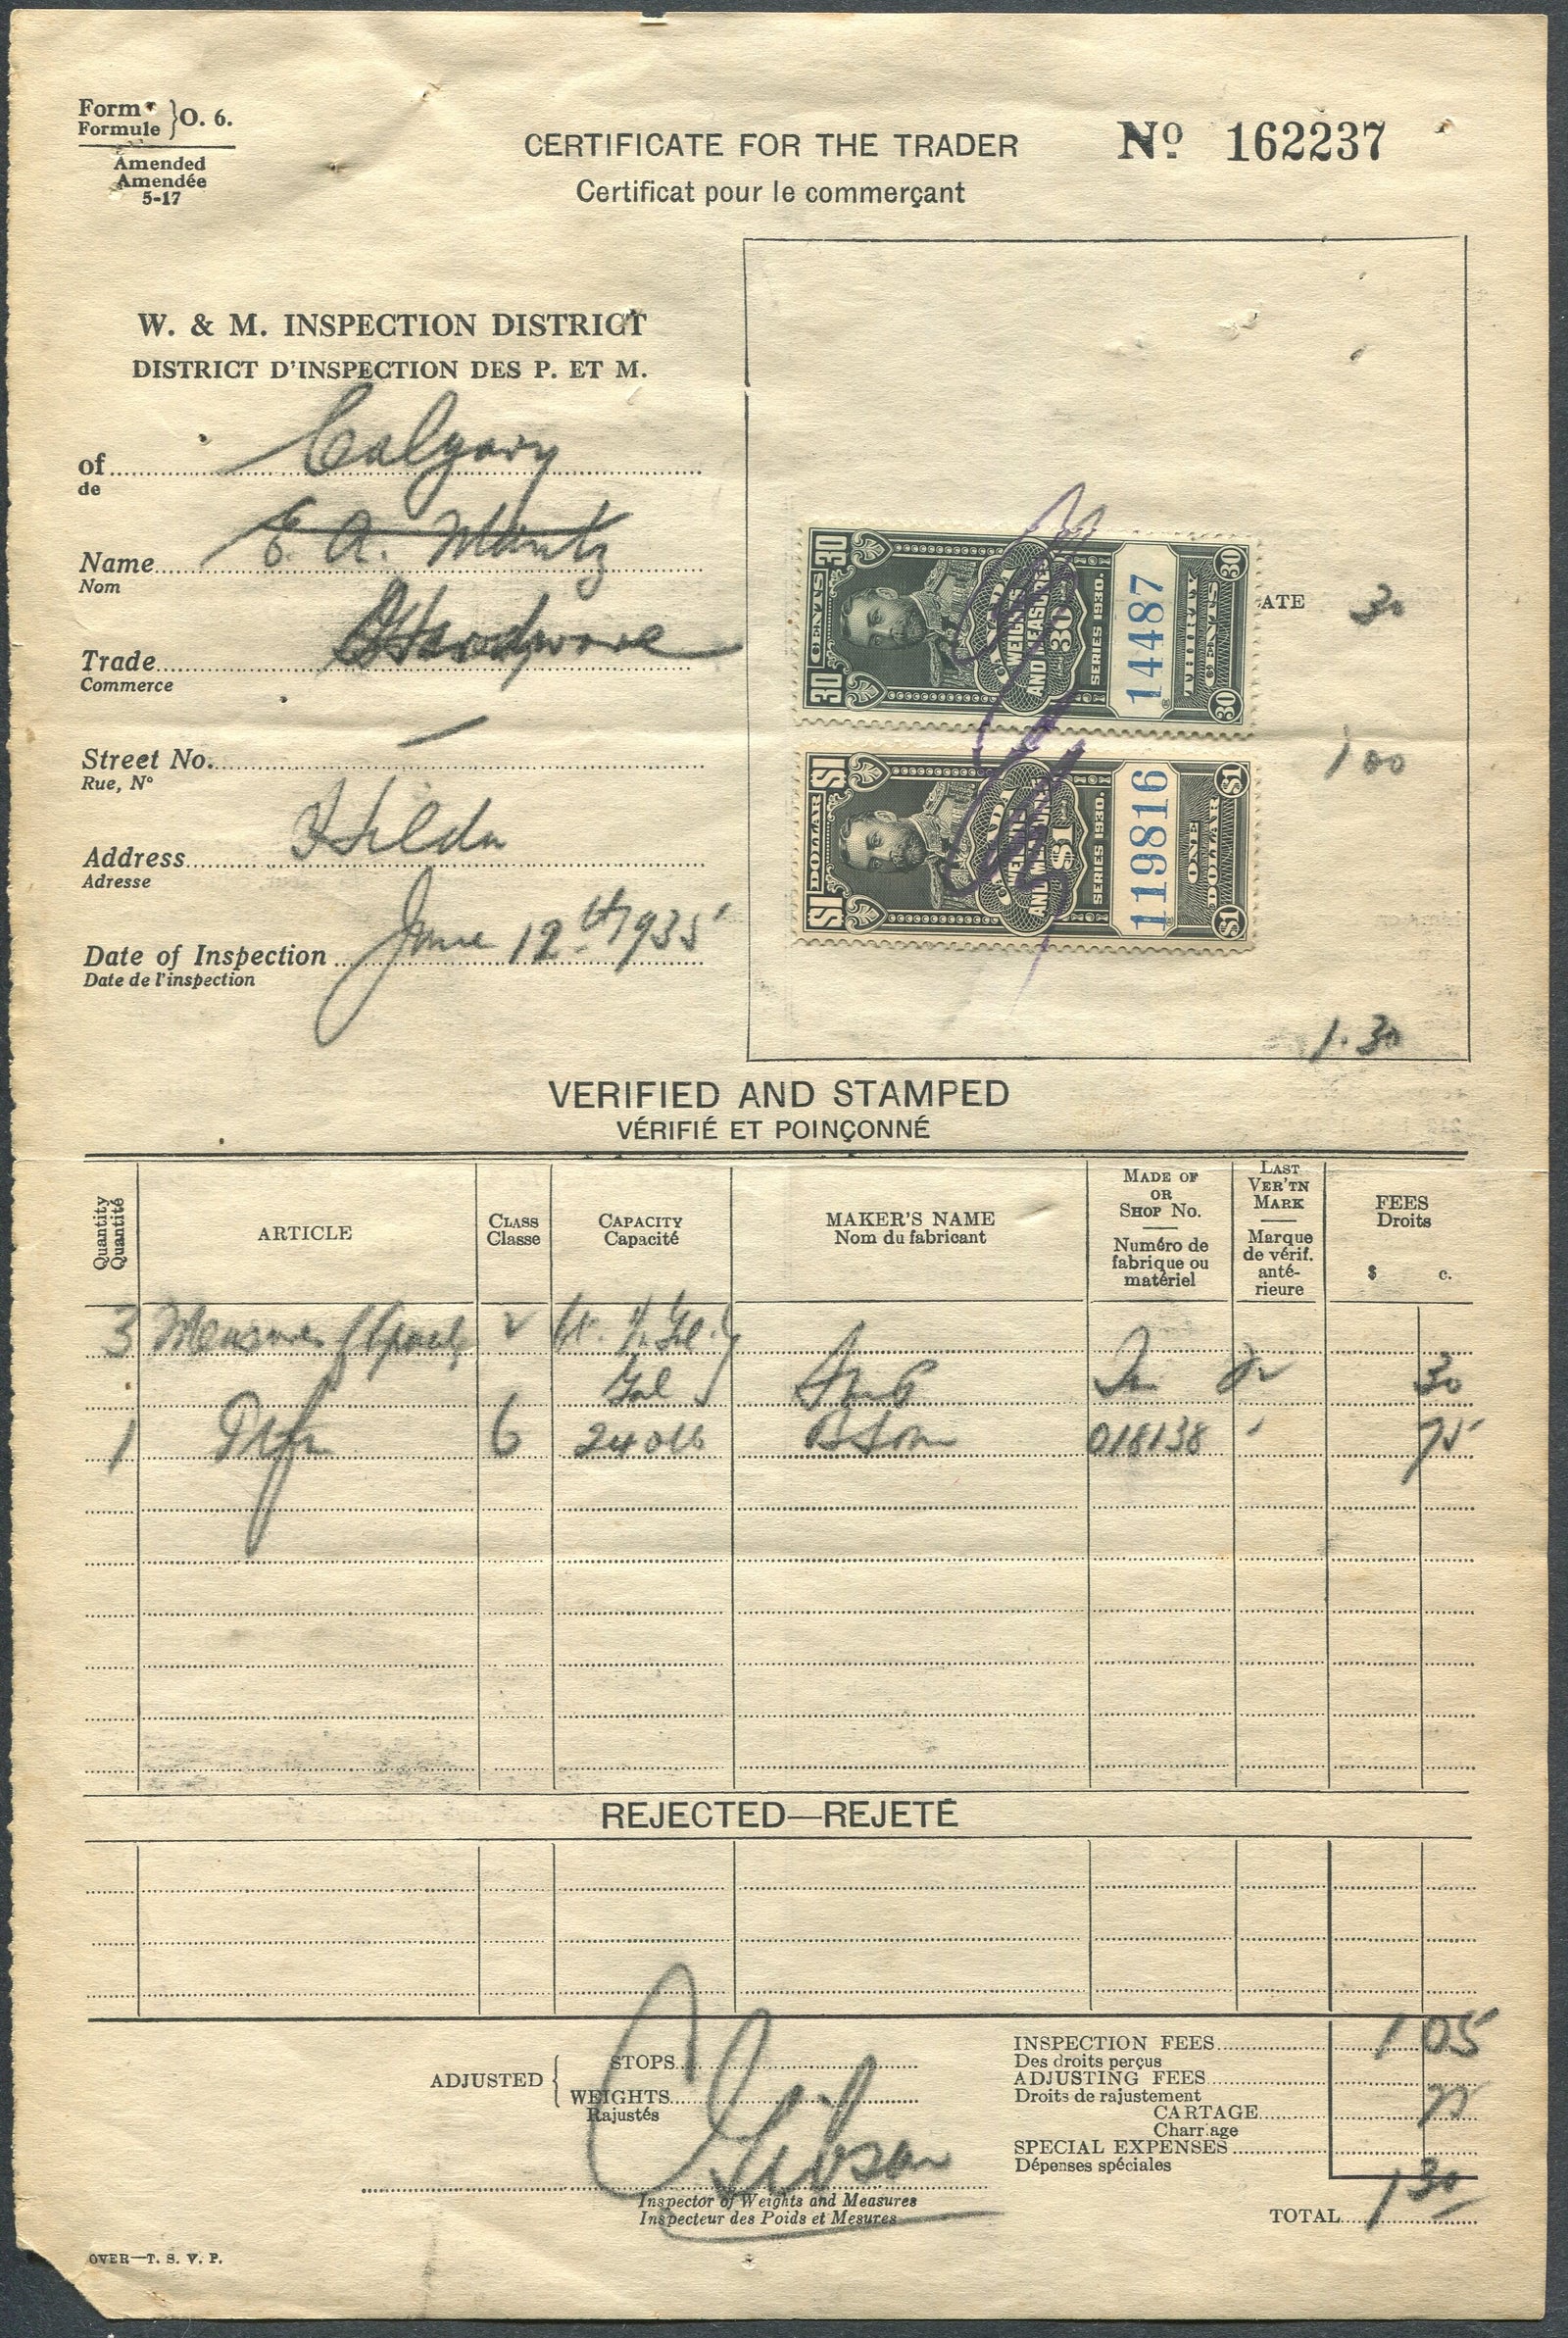 Form
Formule } O. 6.
Amended
Amendée
5-17
CERTIFICATE FOR THE TRADER
Certificat pour le commerçant
Nº 162237
W. & M. INSPECTION DISTRICT
DISTRICT D'INSPECTION DES P. ET M.
of Calgary
de
Name E. A. Mantz
Nom
Trade Hardware
Commerce
Street No. —
Rue, Nº
Address Hilda
Adresse
Date of Inspection June 12th 1935
Date de l'inspection
30 CENTS 30
CANADA
WEIGHTS
AND MEASURES
30
SERIES 1930.
14487
30 THIRTY CENTS 30
ATE 30
$1 DOLLAR $1
CANADA
WEIGHTS
AND MEASURES
$1
SERIES 1930.
119816
$1 ONE DOLLAR $1
1 00
1.30
VERIFIED AND STAMPED
VÉRIFIÉ ET POINÇONNÉ
Quantity
Quantité
ARTICLE
CLASS
Classe
CAPACITY
Capacité
MAKER'S NAME
Nom du fabricant
MADE OF
OR
SHOP NO.
Numéro de
fabrique ou
matériel
LAST
VER'TN
MARK
Marque
de vérif.
anté-
rieure
FEES
Droits
$ c.
3 Measures
Gal 30
1 6 240 lb 018138 75
REJECTED—REJETÉ
ADJUSTED { STOPS
WEIGHTS
Rajustés
Gibson
Inspector of Weights and Measures
Inspecteur des Poids et Mesures
INSPECTION FEES 1 05
Des droits perçus
ADJUSTING FEES
Droits de rajustement
CARTAGE
Charriage
SPECIAL EXPENSES
Dépenses spéciales
TOTAL 1 30
OVER—T. S. V. P.